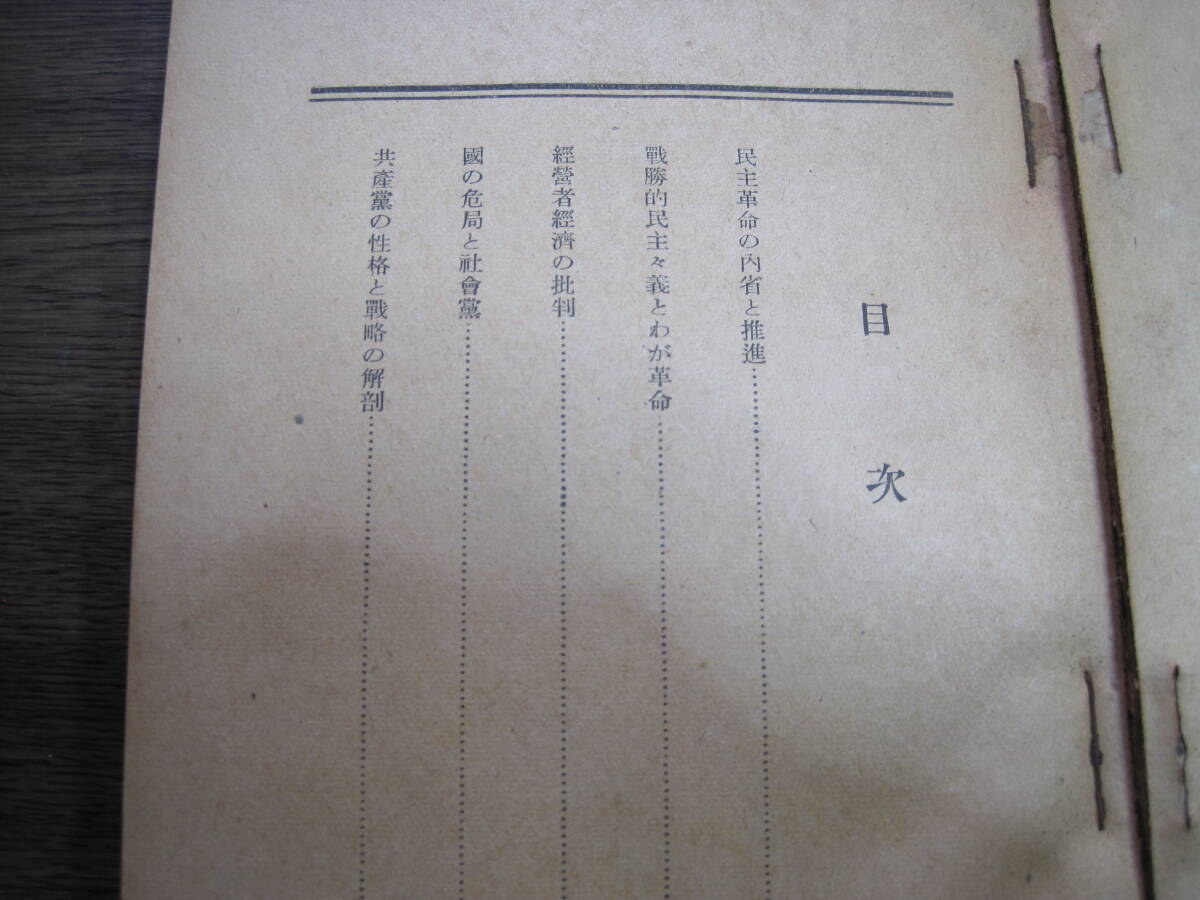 目次
民主革命の內省と推進
戰勝的民主々義とわが革命
經營者經濟の批判
國の危局と社會黨
共產黨の性格と戰略の解剖